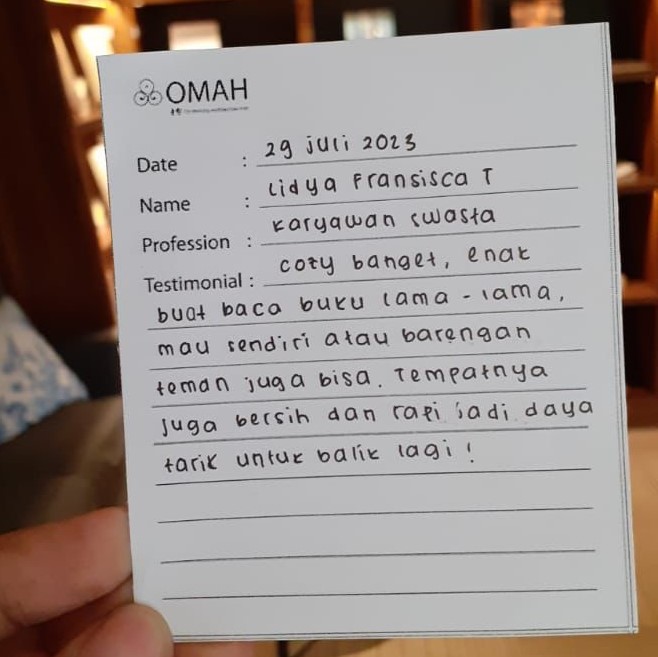 OMAH
Date : 29 juli 2023
Name : Lidya Fransisca T
Profession : karyawan swasta
Testimonial : cozy banget, enak
buat baca buku lama - lama,
mau sendiri atau barengan
teman juga bisa. Tempatnya
juga bersih dan rapi jadi daya
tarik untuk balik lagi !